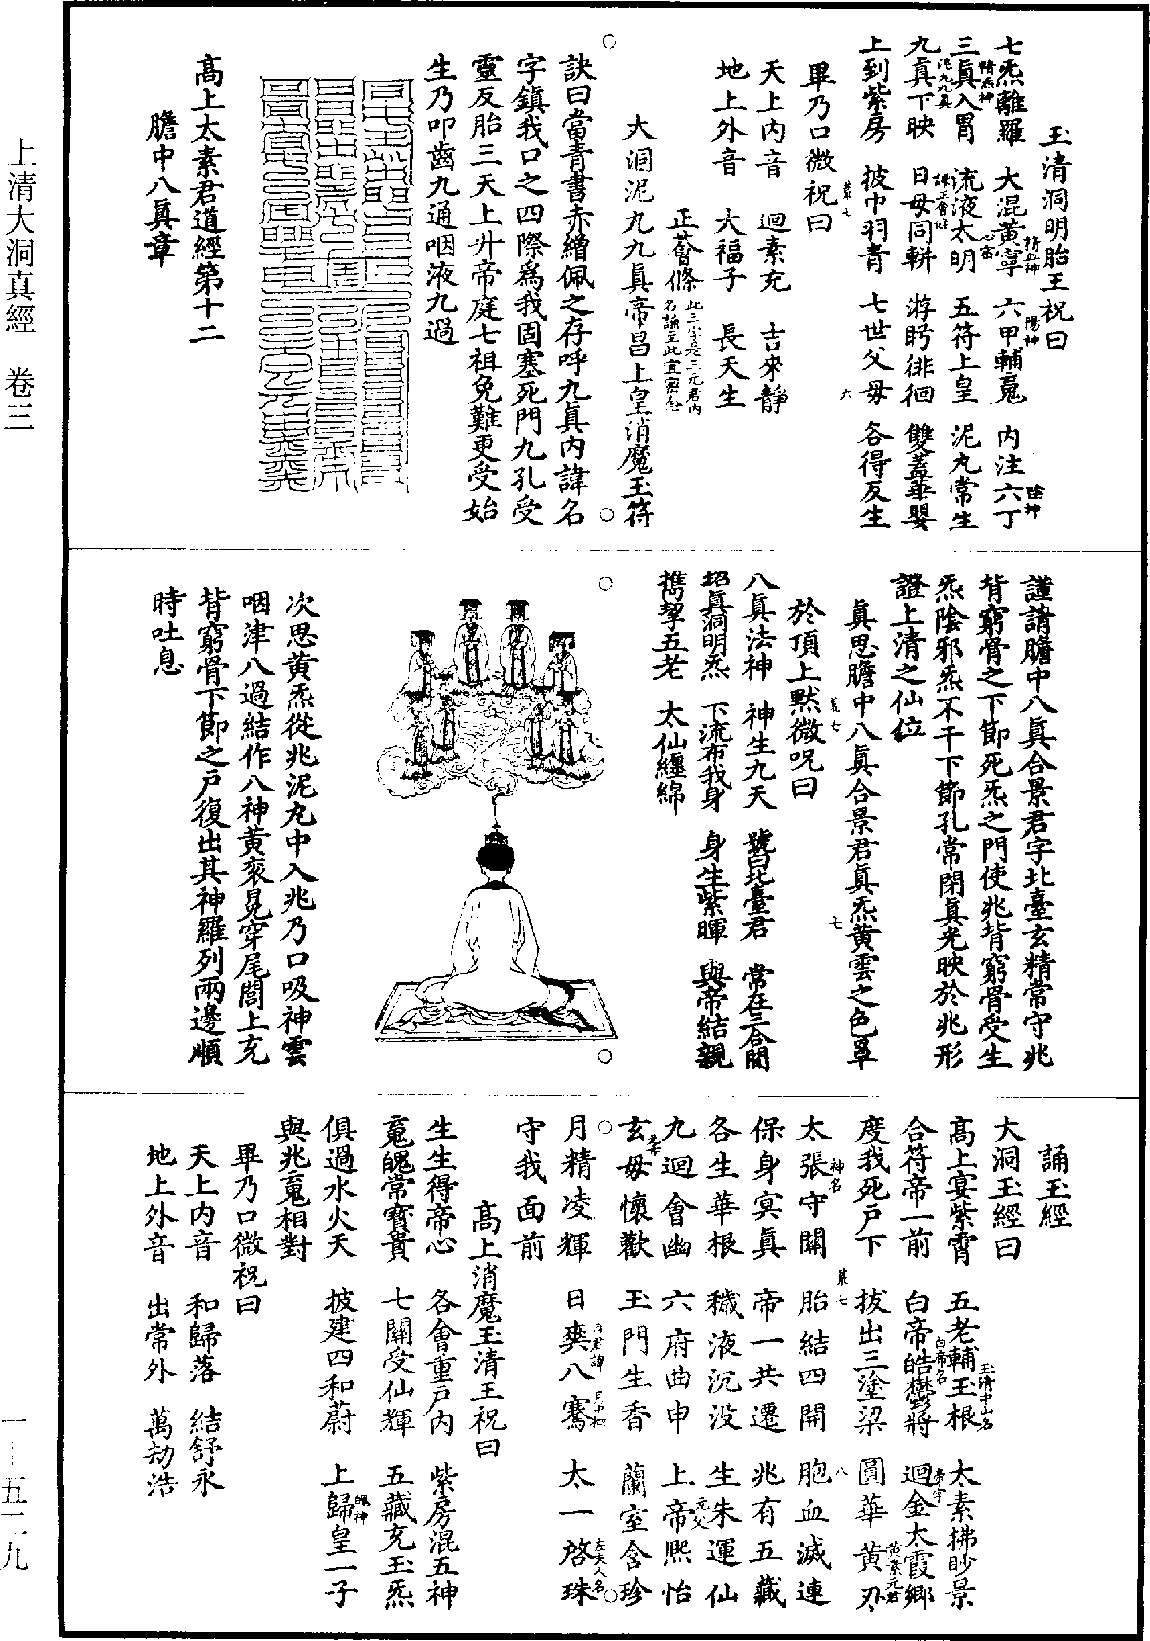 玉清洞明胎王祝曰
七炁離羅 大混黃寧 六甲輔嵬 內注六丁
三真入胃 流液太明 五符上皇 泥丸常生
九真下映 日母同軿 游眄徘徊 雙蓋華嬰
上到紫房 披巾羽青 七世父母 各得反生
畢乃口微祝曰
天上內音 迴素充 吉來靜
地上外音 大福子 長天生
正薈條
大洞泥丸九真帝昌上皇消魔玉符
訣曰當青書赤繒佩之存呼九真內諱名
字鎮我口之四際為我固塞死門九孔受
靈反胎三天上升帝庭七祖免難更受始
生乃叩齒九通咽液九過
高上太素君道經第十二
膽中八真章
謹請膽中八真合景君字北臺玄精常守兆
背窮骨之下節死炁之門使兆背窮骨受生
炁陰邪炁不干下節孔常閉真光映於兆形
證上清之仙位
真思膽中八真合景君真炁黃雲之色罩
於頂上默微呪曰
八真法神 神生九天 號曰北臺君 常在三合間
招真洞明炁 下流布我身 身生紫暉 與帝結親
攜挈五老 太仙纏綿
次思黃炁從兆泥丸中入兆乃口吸神雲
咽津八過結作八神黃衮冕穿尾閭上充
背窮骨下節之戶復出其神羅列兩邊順
時吐息
誦玉經
大洞玉經曰
高上宴紫霄 五老輔玉根 太素拂眇景
合符帝一前 白帝皓鬱將 迴金太霞鄉
度我死戶下 拔出三塗梁 圓華黃刃
太張守關 胎結四開 胞血滅連
保身冥真 帝一共遷 兆有五藏
各生華根 穢液沉沒 生朱運仙
九迴會幽 六府曲申 上帝熙怡
玄母懷歡 玉門生香 蘭室含珍
月精凌輝 日爽八騫 太一啓珠
守我面前
高上消魔玉清王祝曰
生生得帝心 各會重戶內 紫房混五神
嵬魄常寶貴 七關受仙輝 五藏充玉炁
俱過水火天 披建四和蔚 上歸皇一子
與兆嵬相對
畢乃口微祝曰
天上內音 和歸落 結舒永
地上外音 出常外 萬劫浩
上清大洞真經 卷三
一—五二九